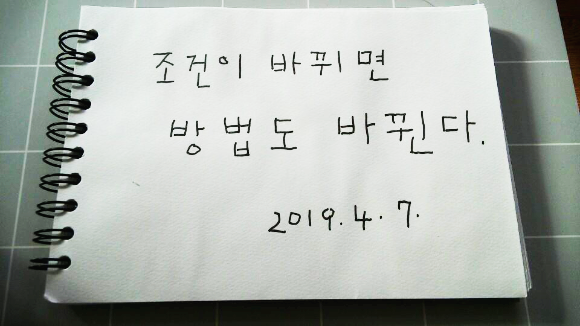 조건이 바뀌면
방법도 바뀐다.
2019. 4. 7.